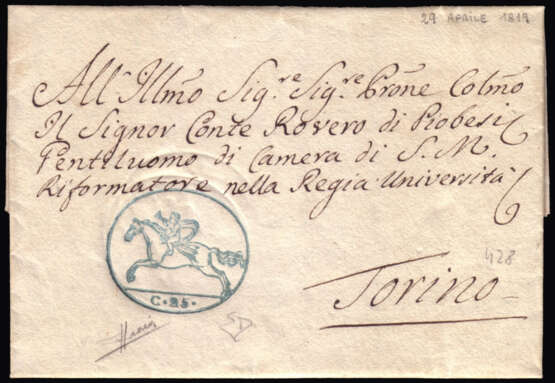 29 APRILE 1819
All' Illmo Sig.re Sig.re Prone Colmo
Il Signor Conte Rovero di Piobesi
Gentiluomo di Camera di S. M.
Riformatore nella Regia Università
428
Torino
C. 25.